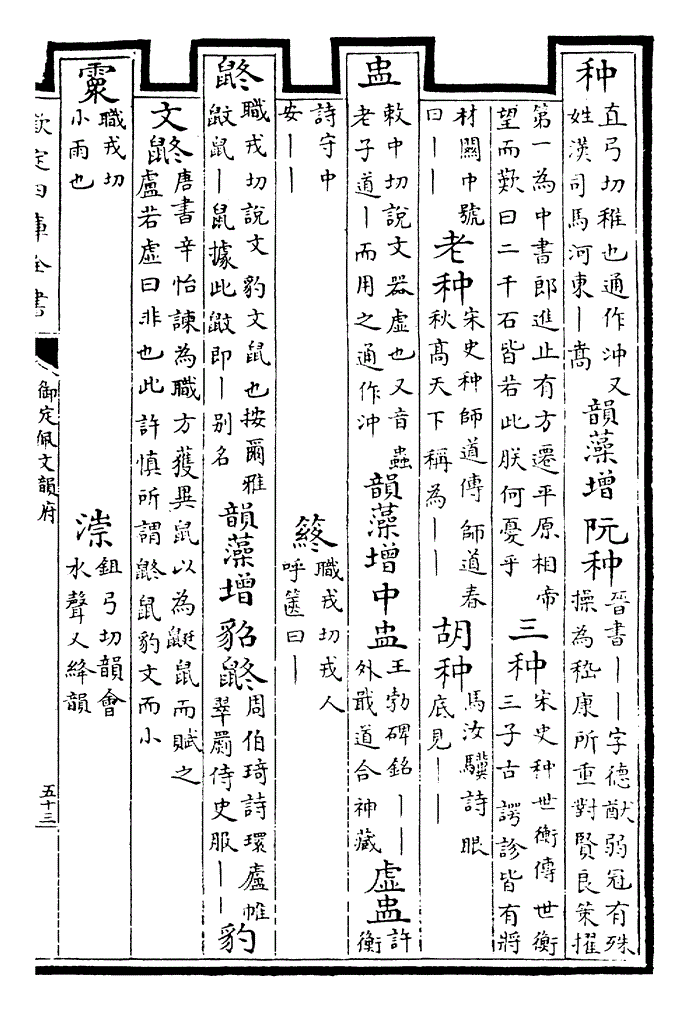 种
直弓切稚也通作沖又
姓漢司馬河東｜暠
韻藻增
阮种
晉書｜｜字德猷弱冠有殊
操為嵇康所重對賢良策擢
第一為中書郎進止有方遷平原相帝
望而歎曰二千石皆若此朕何憂乎
三种
宋史种世衡傳世衡
三子古諤診皆有將
材關中號
曰｜｜
老种
宋史种師道傳師道春
秋髙天下稱為｜｜
胡种
馬汝驥詩眼
底見｜｜
盅
敕中切說文器虛也又音蟲
老子道｜而用之通作沖
韻藻增
中盅
王勃碑銘｜｜
外戢道合神藏
虛盅
許衡
詩守中
安｜｜
䈺
職戎切戎人
呼篴曰｜
鼨
職戎切說文豹文鼠也按爾雅
鼤鼠｜鼠據此鼤即｜别名
韻藻增
貂鼨
周伯琦詩環廬帷
翠罽侍史服｜｜
豹
文鼨
唐書辛怡諫為職方獲異鼠以為鼮鼠而賦之
盧若虛曰非也此許慎所謂鼨鼠豹文而小
霥
職戎切
小雨也
漴
鉏弓切韻會
水聲又絳韻
欽定四庫全書
御定佩文韻府
五十三